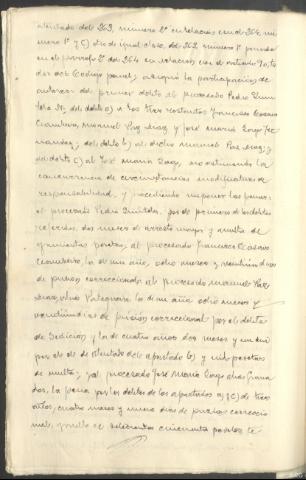 atentado del 263, número 2º en relación con el 264, nú-
mero 1º y C) otro de igual clase, del 263, número 2º penado
en el párrafo 2º del 264 en relación con el artículo 70, to-
dos del Código penal; atribuyó la participación de
autores del primer delito al procesado Pedro Quin-
tela del delito a) a los tres restantes Francisco Casares
Cewteiro, Manuel Paz y José María Lago
del delito b) al dicho Manuel Paz y
del delito c) al José María Lago, no estimando la
concurrencia de circunstancias modificativas de
responsabilidad, y procediendo imponer las penas:
al procesado Pedro Quintela por el primero de los delitos
referidos, dos meses de arresto mayor y multa de
quinientas pesetas, al procesado Francisco Casares
la de un año, ocho meses y veintiún días
de prisión correccional al procesado Manuel Paz
la de un año ocho meses y
veintiún días de prisión correccional por el delito
de sedición y la de cuatro años dos meses y un día
por el de atentado del apartado b) y mil pesetas
de multa; y al procesado José María Lago alias Grana
dos, la pena por los delitos de los apartados a) y C) de tres
años, cuatro meses y ocho días de prisión correccio
nal, y multa de setecientas cincuenta pesetas te